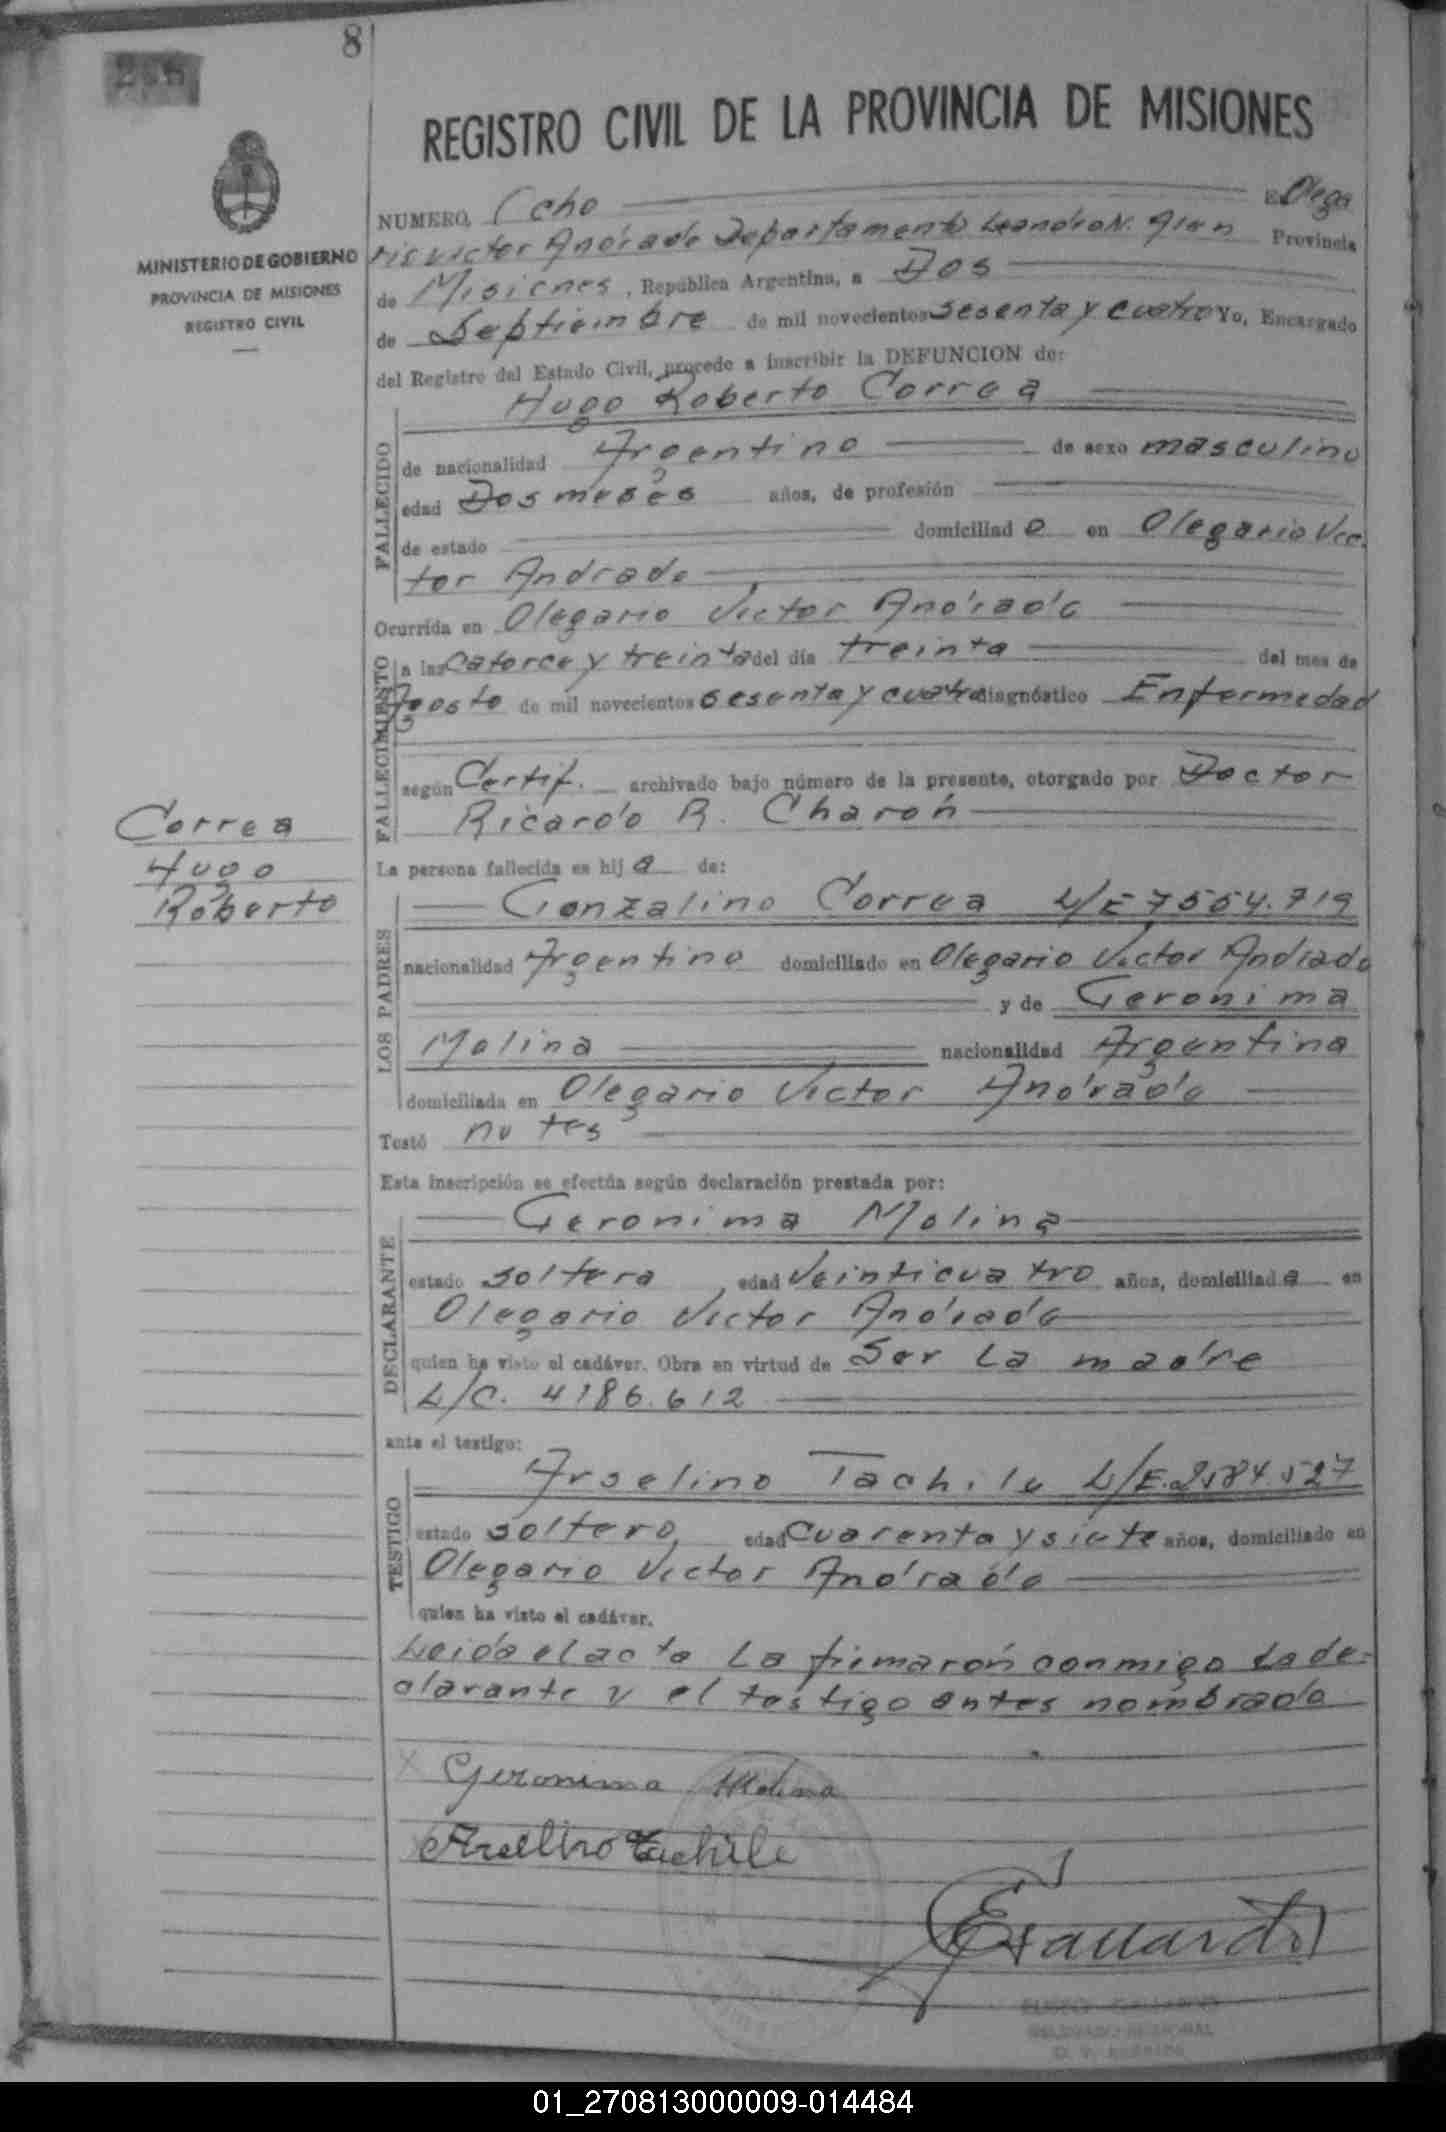 8
REGISTRO CIVIL DE LA PROVINCIA DE MISIONES
MINISTERIO DE GOBIERNO
PROVINCIA DE MISIONES
REGISTRO CIVIL
NUMERO, Ocho E Olega
rio Victor Andrade Departamento Leandro N. Alen Provincia
de Misiones, República Argentina, a Dos
de Septiembre de mil novecientos sesenta y cuatro Yo, Encargado
del Registro del Estado Civil, procedo a inscribir la DEFUNCION de:
Hugo Roberto Correa
FALLECIDO
de nacionalidad Argentino de sexo masculino
edad Dos meses años, de profesión
de estado domiciliado en Olegario Vic-
tor Andrade
Ocurrida en Olegario Victor Andrade
FALLECIMIENTO
a las Catorce y treinta del día treinta del mes de
Agosto de mil novecientos sesenta y cuatro diagnóstico Enfermedad
según Certif. archivado bajo número de la presente, otorgado por Doctor
Ricardo R. Charón
Correa
Hugo
Roberto
La persona fallecida es hijo de:
LOS PADRES
Gonzalino Correa L/E 7554.719
nacionalidad Argentino domiciliado en Olegario Victor Andrade
y de Geronima
Molina nacionalidad Argentina
domiciliada en Olegario Victor Andrade
Testó no tes
Esta inscripción se efectúa según declaración prestada por:
DECLARANTE
Geronima Molina
estado soltera, edad Veinticuatro años, domiciliada en
Olegario Victor Andrade
quien ha visto el cadáver. Obra en virtud de Ser La madre
L/C. 4186.612
ante el testigo:
TESTIGO
Arselino Tachile L/E. 2584.527
estado soltero, edad Cuarenta y siete años, domiciliado en
Olegario Victor Andrade
quien ha visto el cadáver.
Leida el acta La firmarón conmigo La de-
clarante y el testigo antes nombrado
X Geronima Molina
Arselino Tachile
EGallardo
01_270813000009-014484